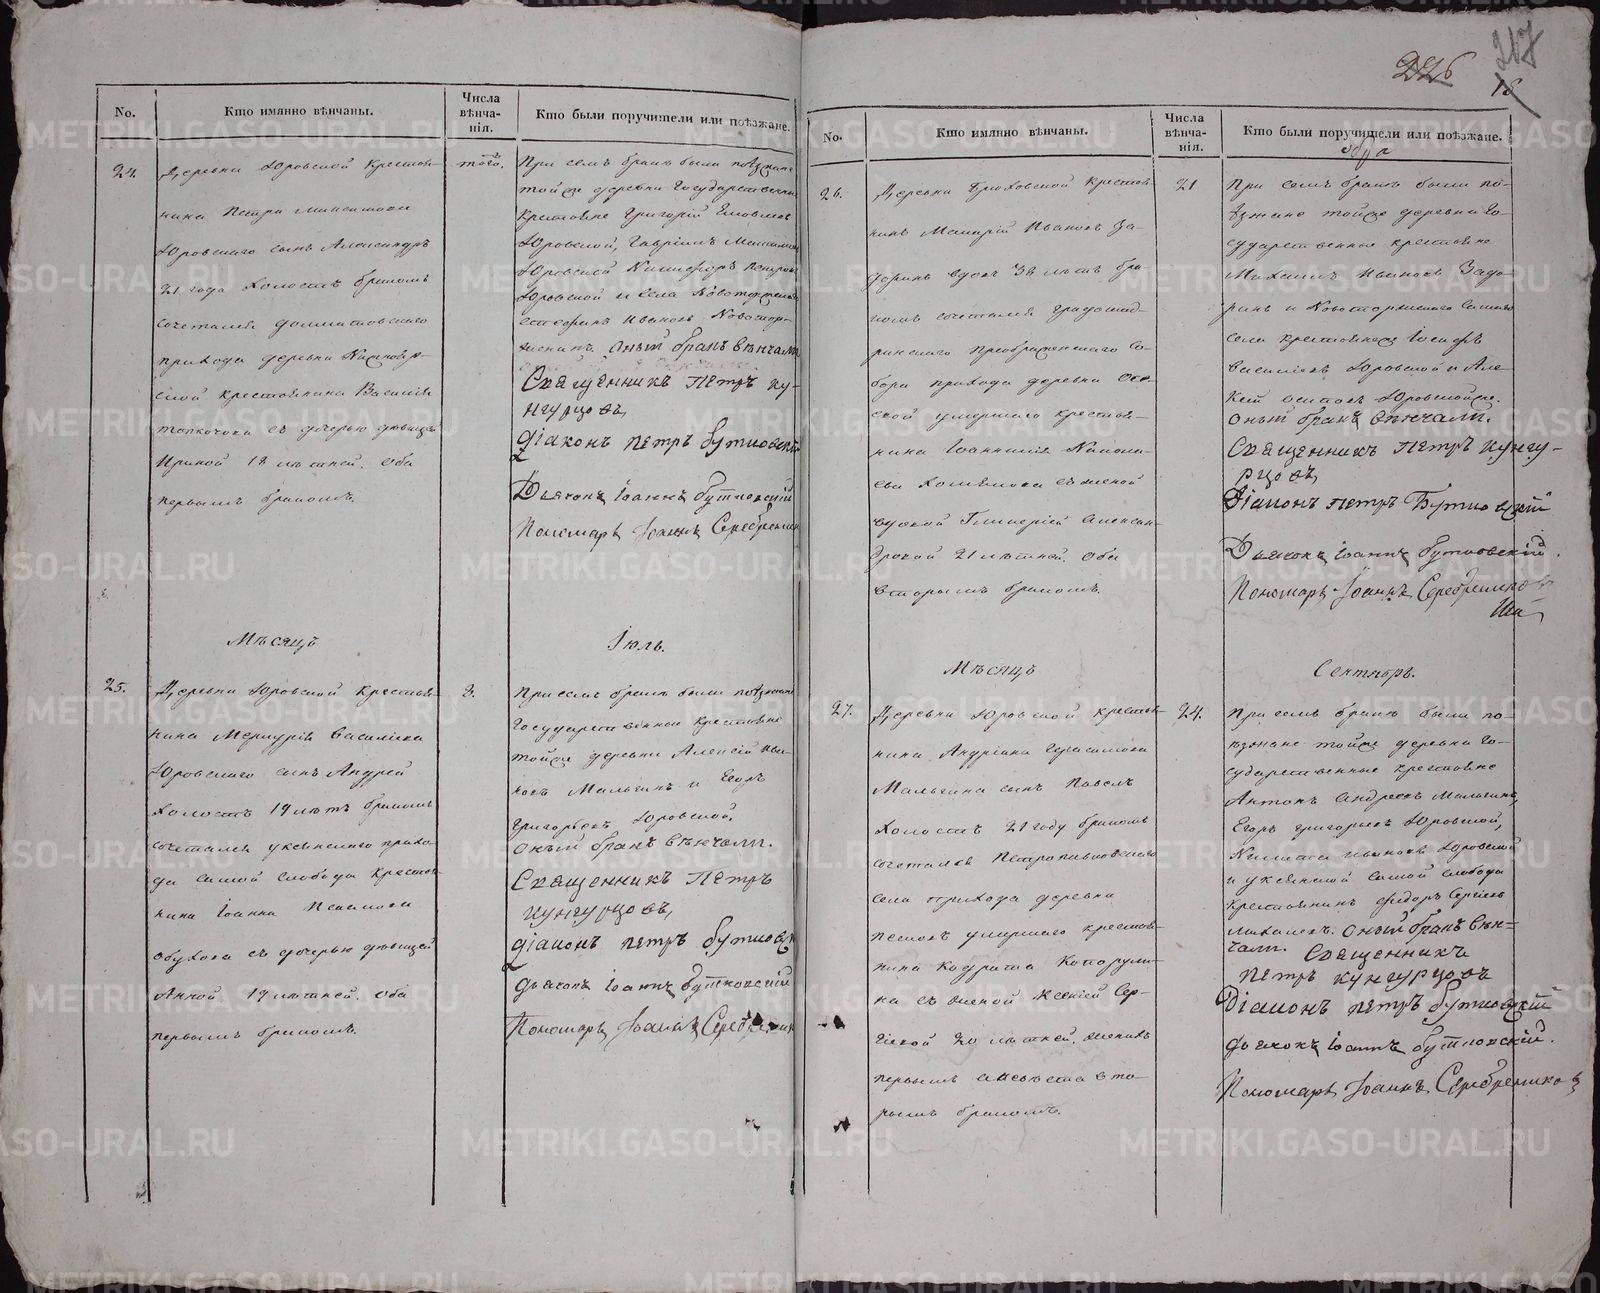 226
217
18
No.
Кто имянно вѣнчаны.
Числа вѣнча-
нія.
Кто были поручители или поѣзжане.
24.
Деревни Юровской крестья-
нина Петра
Юровскаго сынъ Александръ
21 года холостъ бракомъ
сочетался долматовскаго
прихода деревни
крестьянина Василія
съ дочерью дѣвицей
Ириной 18 лѣтней. Оба
первымъ бракомъ.
того.
При семъ бракѣ были поѣзжане
тойже деревни Государственные
крестьяне Григорій
Юровской, Гавріилъ
Юровской Никифоръ Петровъ
Юровской и села
Иванов
Оный бракъ вѣнчали
Священникъ Петръ Ку-
нгурцовъ,
Діаконъ Петръ Бутковскій
Дьячокъ Іоаннъ Бутковскій
Пономарь Іоаннъ Серебренник
Мѣсяцъ
Іюль.
25.
Деревни Юровской крестья-
нина Меркурія Васильева
Юровскаго сынъ Андрей
холостъ 19 лѣтъ бракомъ
сочетался уксянскаго прихо-
да самой слободы крестья-
нина Іоанна
Обухова съ дочерью дѣвицей
Анной 19 лѣтней. Оба
первымъ бракомъ.
2.
При семъ бракѣ были поѣзжане
государственные крестьяне
тойже деревни Алексѣй Ива-
новъ Мальгинъ и Егоръ
Григорьевъ Юровской.
Оный бракъ вѣнчали.
Священникъ Петръ
Кунгурцовъ,
Діаконъ Петръ Бутковск
Дьячокъ Іоаннъ Бутковскій
Пономарь Іоаннъ Серебренник
No.
Кто имянно вѣнчаны.
Числа вѣнча-
нія.
Кто были поручители или поѣзжане.
26.
Деревни крестья-
нинъ Иванов За-
доринъ вдовъ 38 лѣтъ бра-
комъ сочетался градошад-
ринскаго Преображенскаго Со-
бора прихода деревни Осе-
евой умершаго крестья-
нина
съ женой
вдовой Гликеріей Алексан-
дровой 21 лѣтней. Оба
вторымъ бракомъ.
21
При семъ бракѣ были по-
ѣзжане тойже деревни Го-
сударственные крестьяне
Михаилъ Ивановъ Задо-
ринъ и Новоторжскаго самаго
села крестьянинъ Іосифъ
Васильевъ Юровской и Але-
ксѣй Осиповъ
Оный бракъ вѣнчали.
Священникъ Петръ Кунгу-
рцовъ,
Діаконъ Петръ Бутковскій
Дьячокъ Іоаннъ Бутковскій.
Пономарь Іоаннъ Серебренников
Мѣсяцъ
Сентябрь.
27.
Деревни Юровской крестья-
нина Андріана Герасимова
Мальгина сынъ Павелъ
холостъ 21 году бракомъ
сочетался Петропавловскаго
села прихода деревни
Песковъ умершаго крестья-
нина Кодрата
на съ женой Ксеніей Сер-
гіевой 20 лѣтней. женихъ
первымъ а невѣста вто-
рымъ бракомъ.
24.
При семъ бракѣ были по-
ѣзжане тойже деревни го-
сударственные крестьяне
Антонъ Андреевъ Мальгинъ,
Егоръ Григорьевъ Юровской,
Никита Ивановъ Юровской
и уксянской самой слободы
крестьянинъ Ѳедоръ Сергіевъ
Оный бракъ вѣн-
чали. Священникъ
Петръ Кунгурцовъ
Діаконъ Петръ Бутковскій
Дьячокъ Іоаннъ Бутковскій.
Пономарь Іоаннъ Серебренников
METRIKI.GASO-URAL.RU